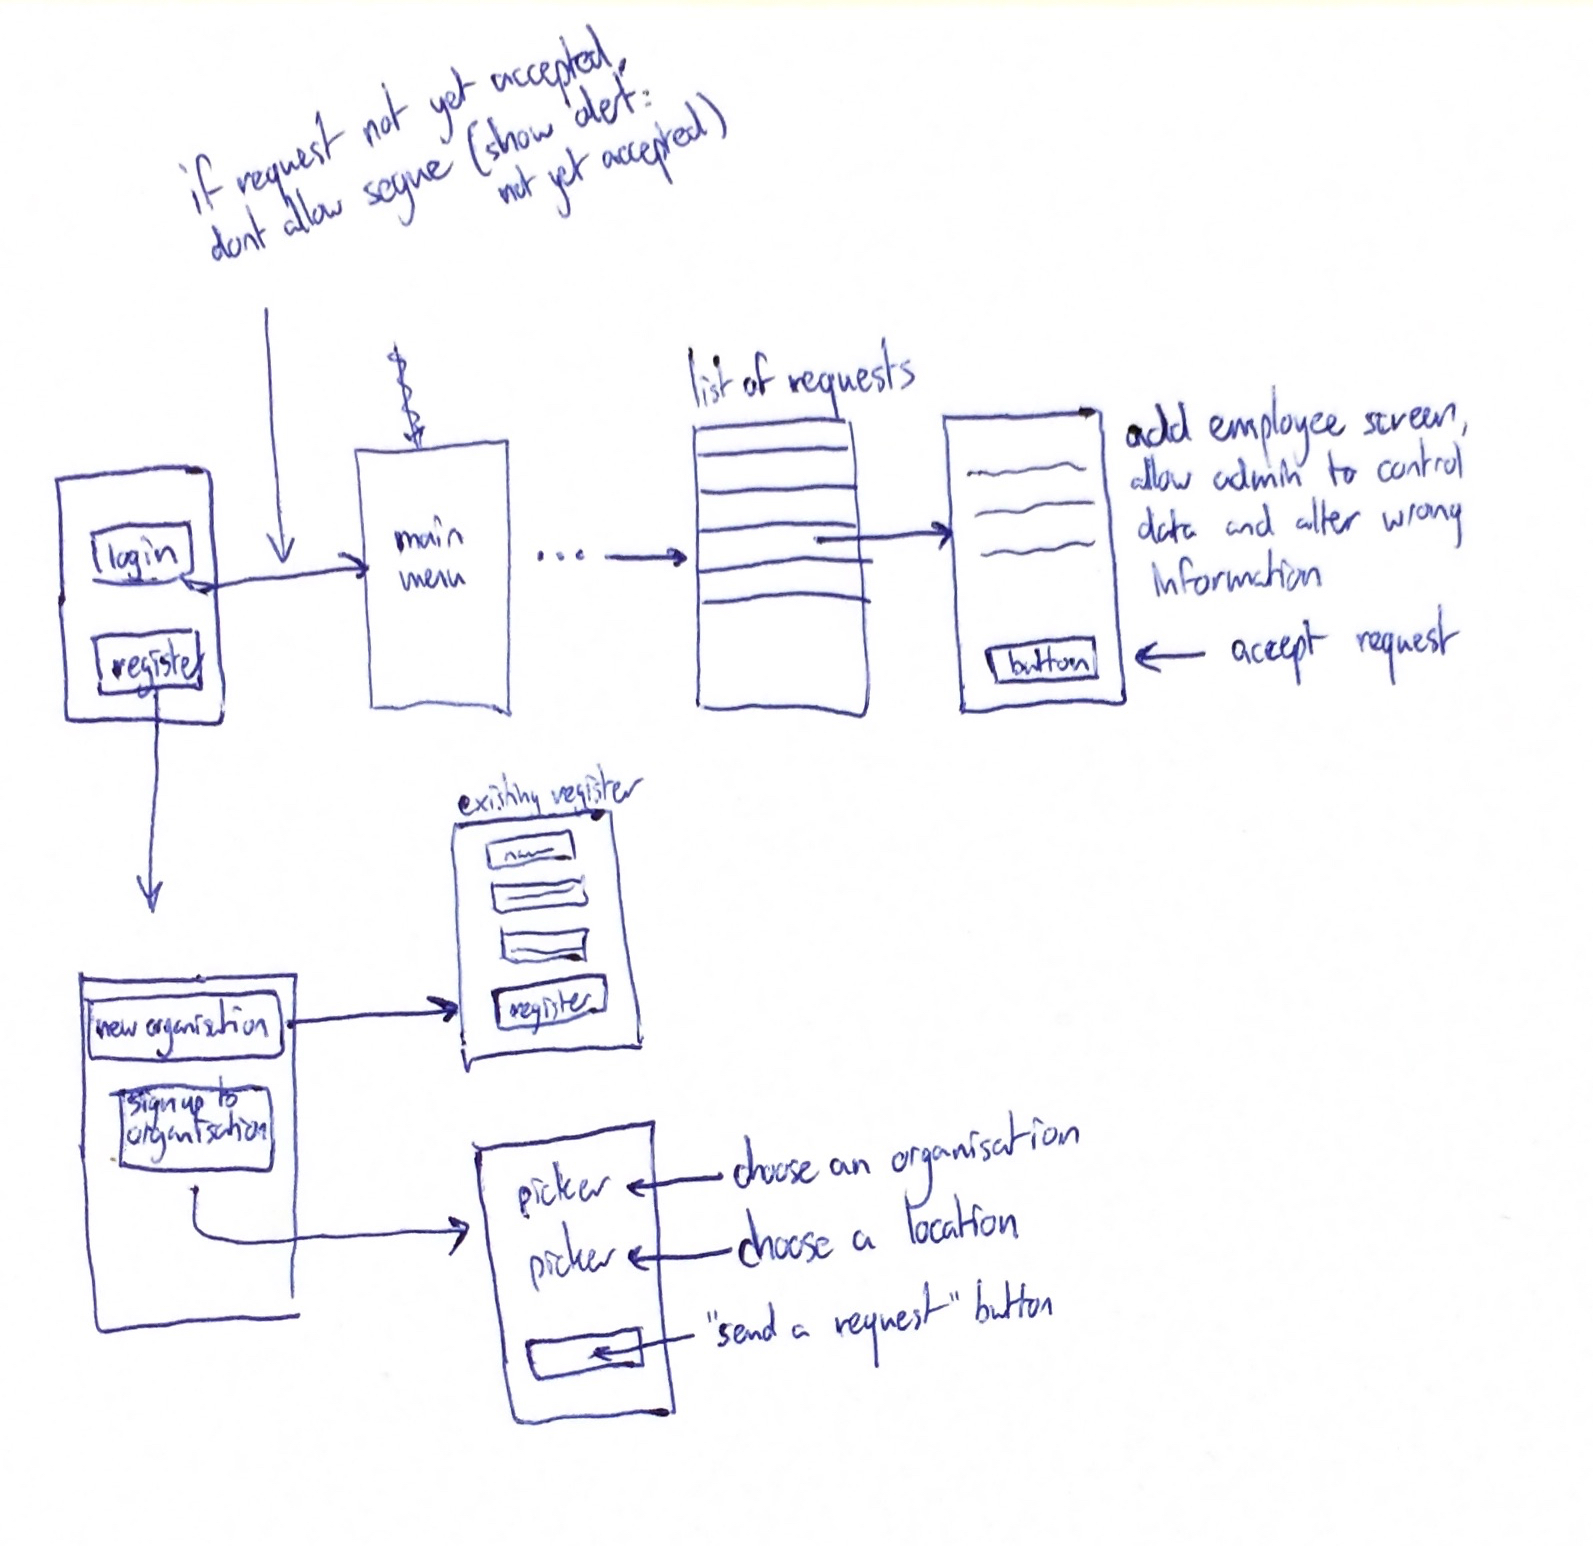 if request not yet accepted,
dont allow segue (show alert:
not yet accepted)
list of requests
add employee screen,
allow admin to control
data and alter wrong
information
login
register
main
menu
...
button
accept request
existing register
register
new organisation
sign up to
organisation
picker
choose an organisation
picker
choose a location
"send a request" button